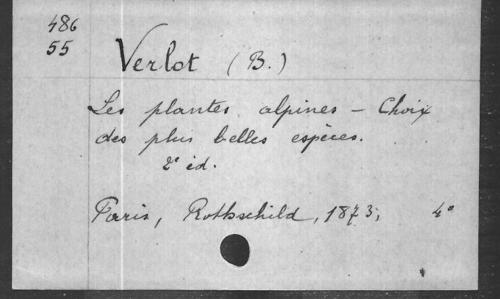 486
55
Verlot (B.)
Les plantes alpines – Choix
des plus belles espèces.
2e éd.
Paris, Rothschild, 1873, 4°